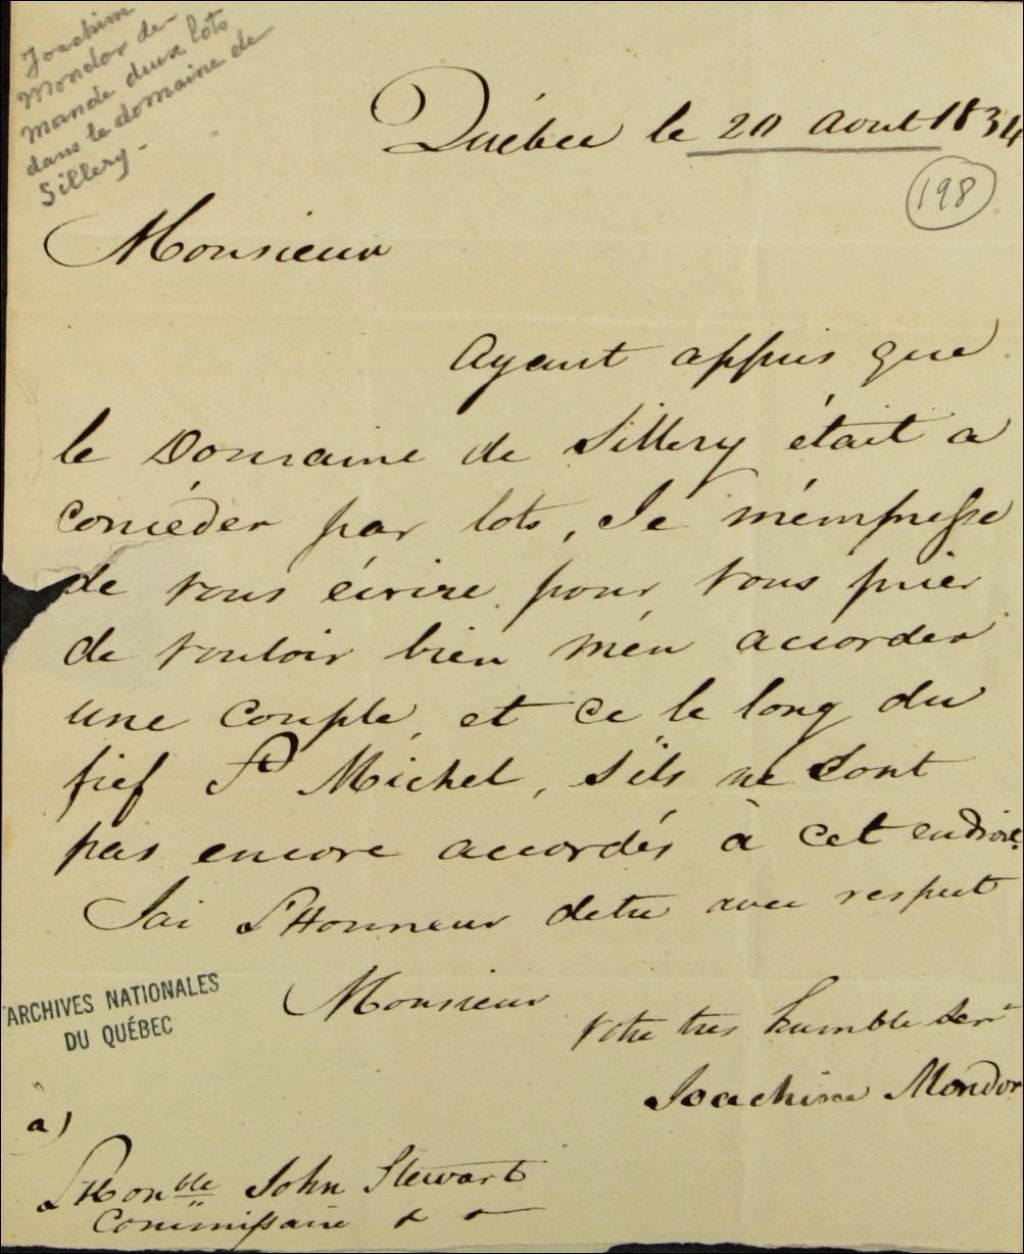 Joachim
Mondor de-
mande deux lots
dans le domaine de
Sillery -
Québec le 20 Aout 1834
198
Monsieur
Ayant appris que
le Domaine de Sillery était a
concéder par lots, Je m'empresse
de vous écrire pour vous prier
de vouloir bien m'en accorder
une couple, et ce le long du
fief St Michel, s'ils ne sont
pas encore accordés à cet endroit.
Jai L'Honneur detre avec respect
Monsieur
Votre tres humble Sert
Joachim Mondor
ARCHIVES NATIONALES
DU QUÉBEC
a)
L'Honble John Stewart
Commissaire